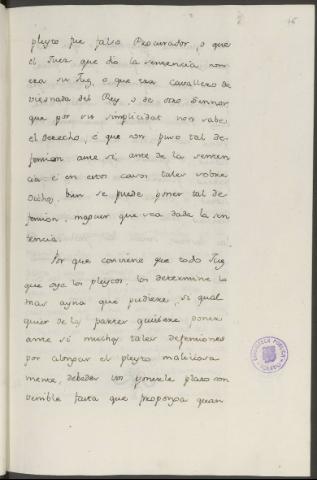 16
pleyto fue falso Procurador, o que
el Juez que dio la sentencia non
era su Juz, o que era cavallero de
del Rey, o de otro Sennor
que por su simplicidat non sabe
el derecho, e que non puso tal de-
fension ante si ante de la senten-
cia: e en estos casos tales sobre
dichos, bien se puede poner tal de-
fension, maguer que sea dada la sen
tencia.
Por que conviene que todo Juz
que oya los pleytos, los determine lo
mas ayna que pudiere, si qual
quier de las partes quisiere poner
ante si muchas tales defensiones
por alongar el pleyto maliciosa
mente, debedes los ponerle plazo con
venible fasta que proponga quan